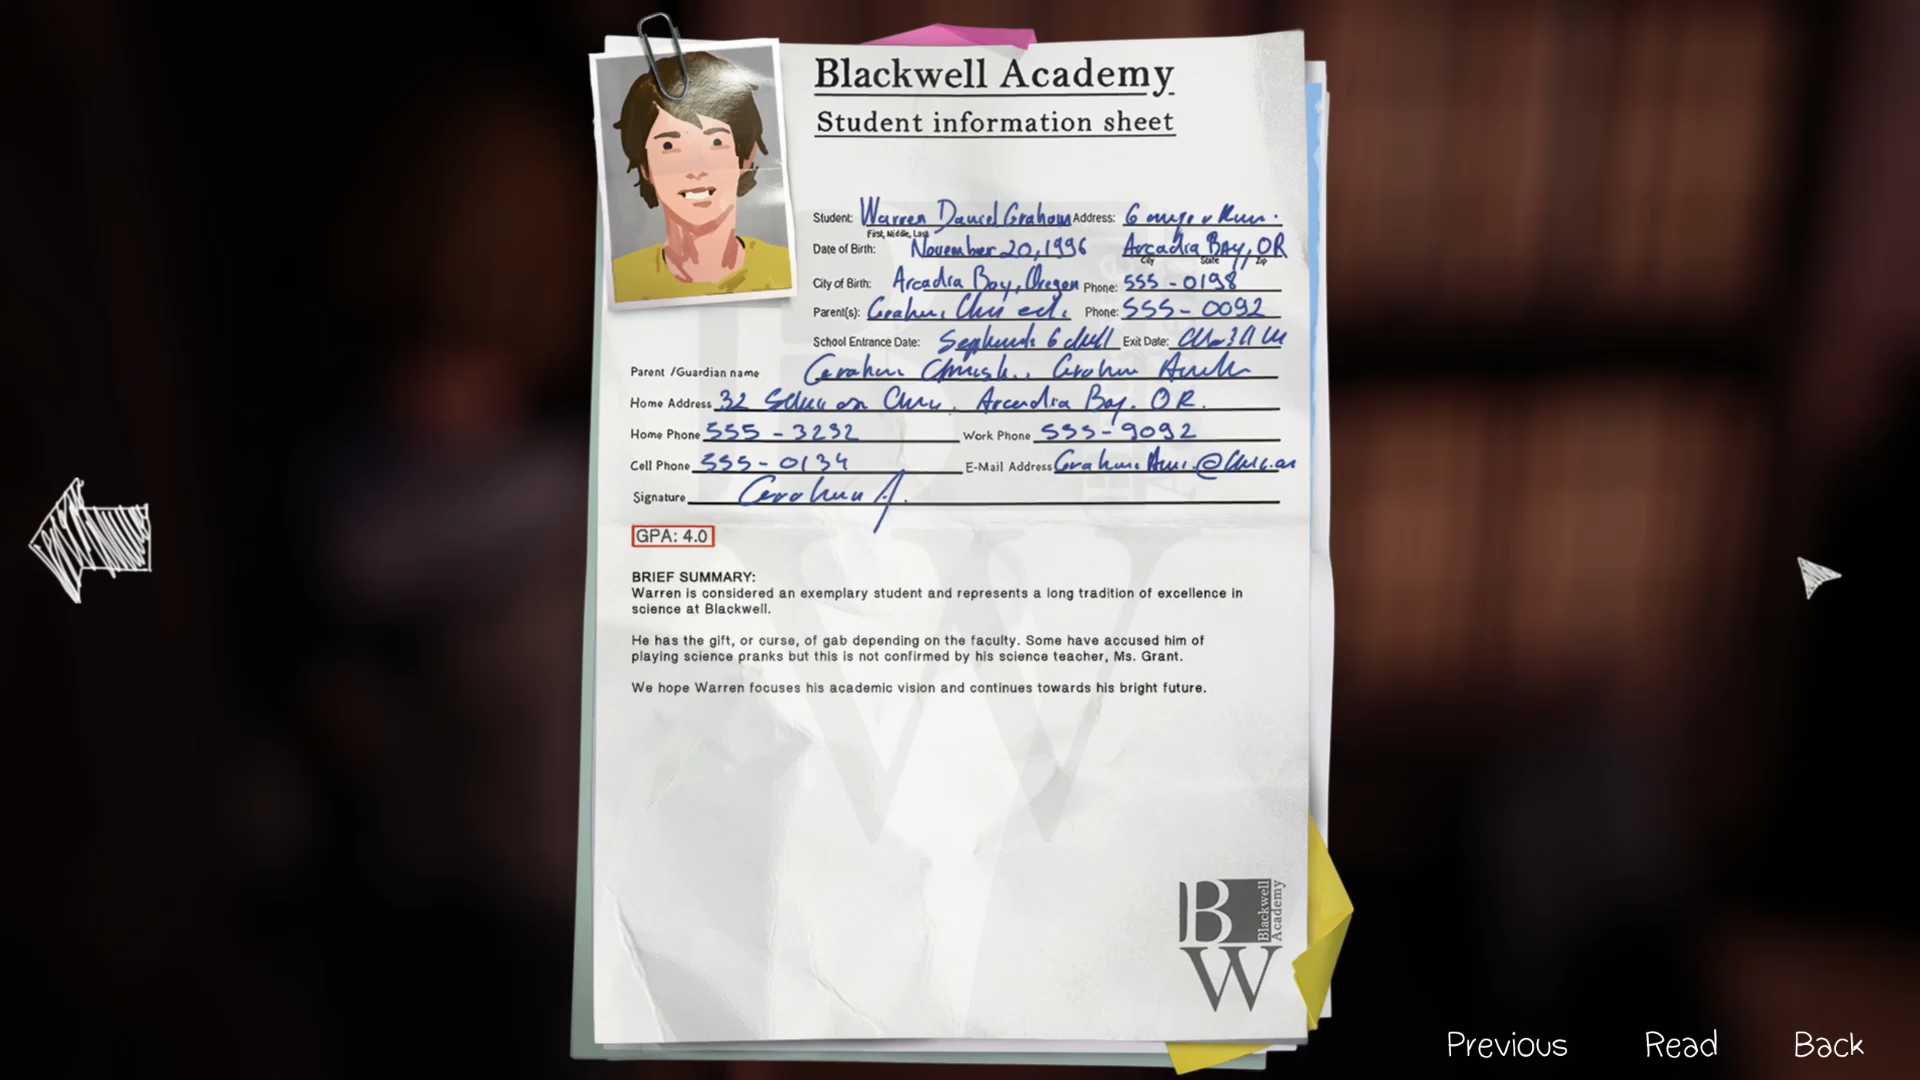 Blackwell Academy
Student information sheet
Student: Warren Daniel Graham Address:
First, Middle, Last
Date of Birth: November 20, 1996 Arcadia Bay, OR
City State Zip
City of Birth: Arcadia Bay, Oregon Phone: 555-0198
Parent(s): Graham Phone: 555-0092
School Entrance Date: Exit Date:
Parent /Guardian name Graham Graham
Home Address 32 Arcadia Bay. OR.
Home Phone 555-3232 Work Phone 555-9092
Cell Phone 555-0134 E-Mail Address
Signature Graham A.
GPA: 4.0
BRIEF SUMMARY:
Warren is considered an exemplary student and represents a long tradition of excellence in
science at Blackwell.
He has the gift, or curse, of gab depending on the faculty. Some have accused him of
playing science pranks but this is not confirmed by his science teacher, Ms. Grant.
We hope Warren focuses his academic vision and continues towards his bright future.
B
Blackwell
Academy
W
Previous Read Back